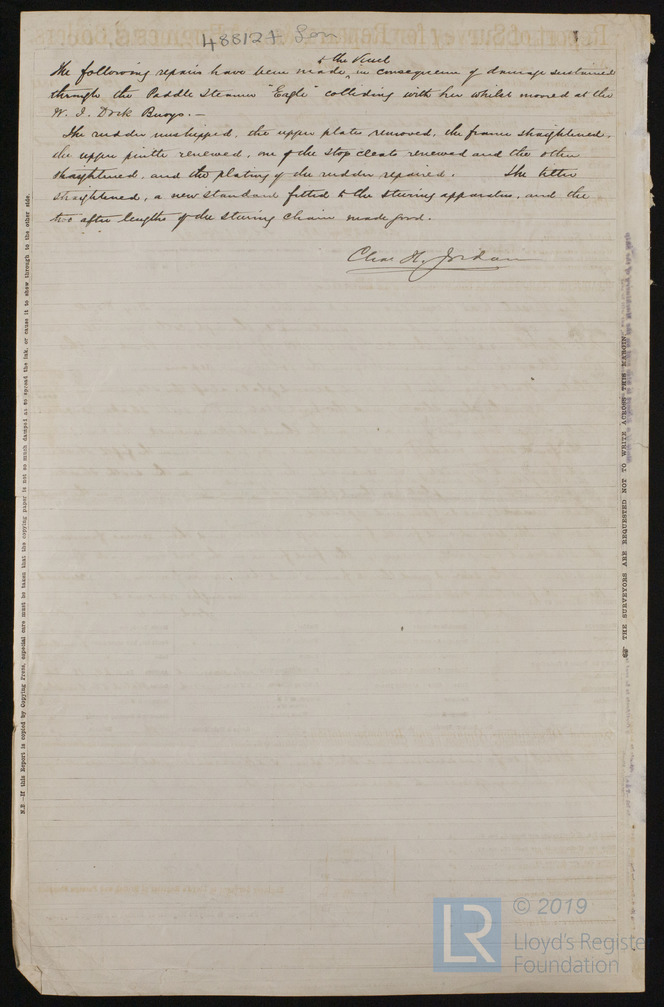 48812 + Lon
to the Vessel
The following repairs have been made, in consequence of damage sustained
through the Paddle Steamer "Eagle" colliding with her whilst moored at the
W. I. Dock Buoys. —
The rudder unshipped, the upper plate removed, the frame straightened,
the upper pintle renewed, one of the stop cleats renewed and the other
straightened, and the plating of the rudder repaired. The tiller
straightened, a new standard fitted to the steering apparatus, and the
two after lengths of the steering chain made good.
Chas H. Jordan
N.B.—If this Report is copied by Copying Press, especial care must be taken that the copying paper is not so much damped as to spread the ink, or cause it to show through to the other side.
☞ THE SURVEYORS ARE REQUESTED NOT TO WRITE ACROSS THIS MARGIN.
LR
© 2019
Lloyd's Register
Foundation